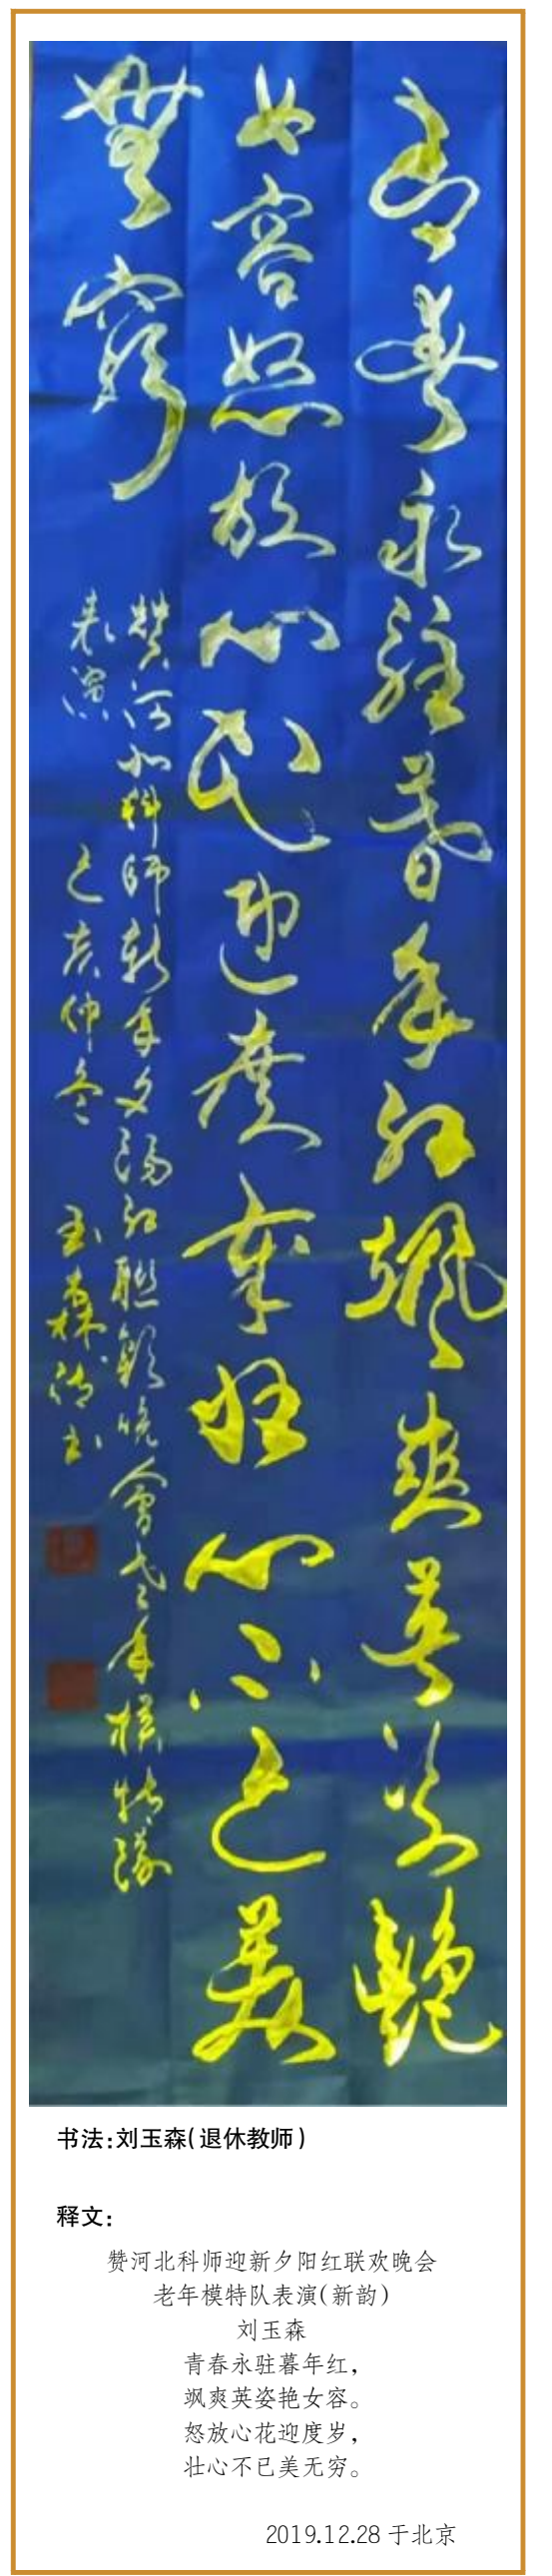 青春永驻暮年红飒爽英姿艳
女容怒放心花迎度岁壮心不已美
無穷
赞河北科师新年夕阳红联欢晚会老年模特队
表演 己亥仲冬 玉森诗书
书法:刘玉森(退休教师)
释文:
赞河北科师迎新夕阳红联欢晚会
老年模特队表演(新韵)
刘玉森
青春永驻暮年红,
飒爽英姿艳女容。
怒放心花迎度岁,
壮心不已美无穷。
2019.12.28 于北京